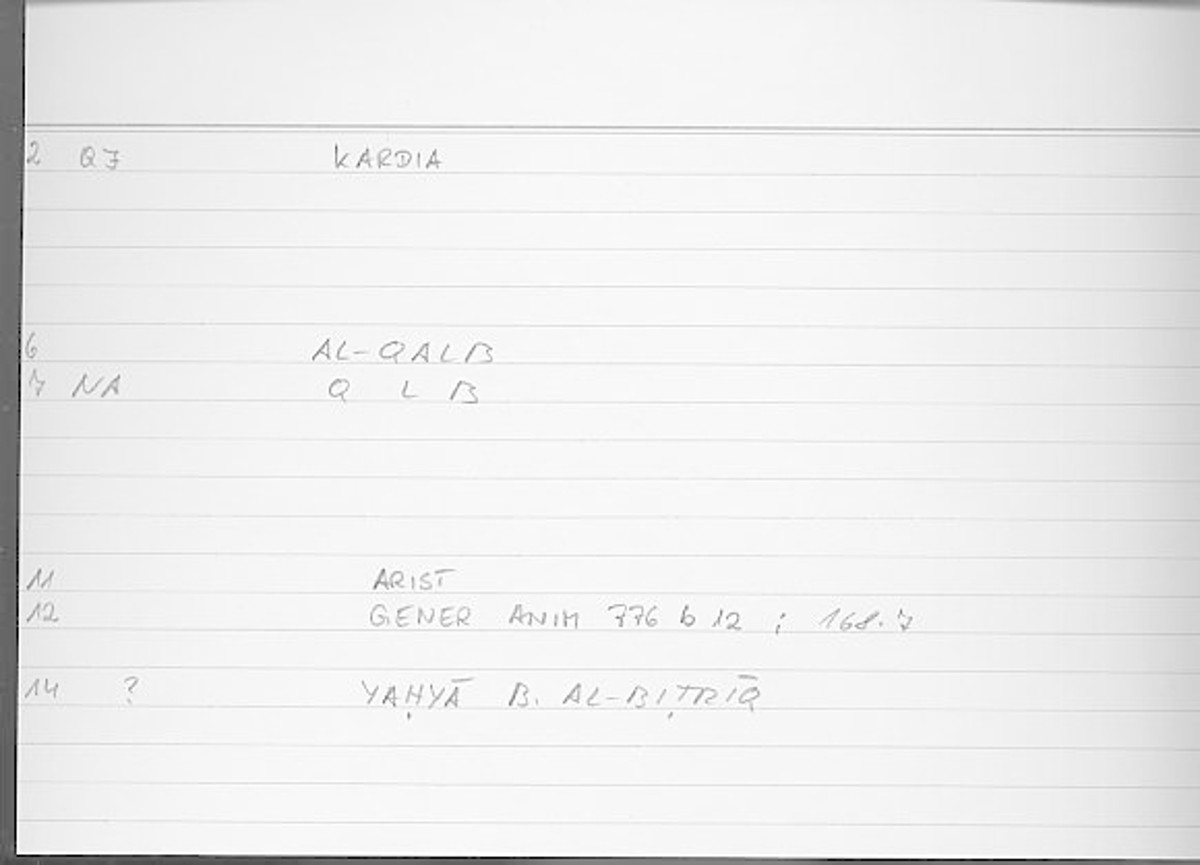 2 QZ KARDIA
6 AL-QALB
7 NA Q L B
11 ARIST
12 GENER ANIM 776 b 12 ; 168.7
14 ? YAḤYĀ B. AL-BIṬRĪQ